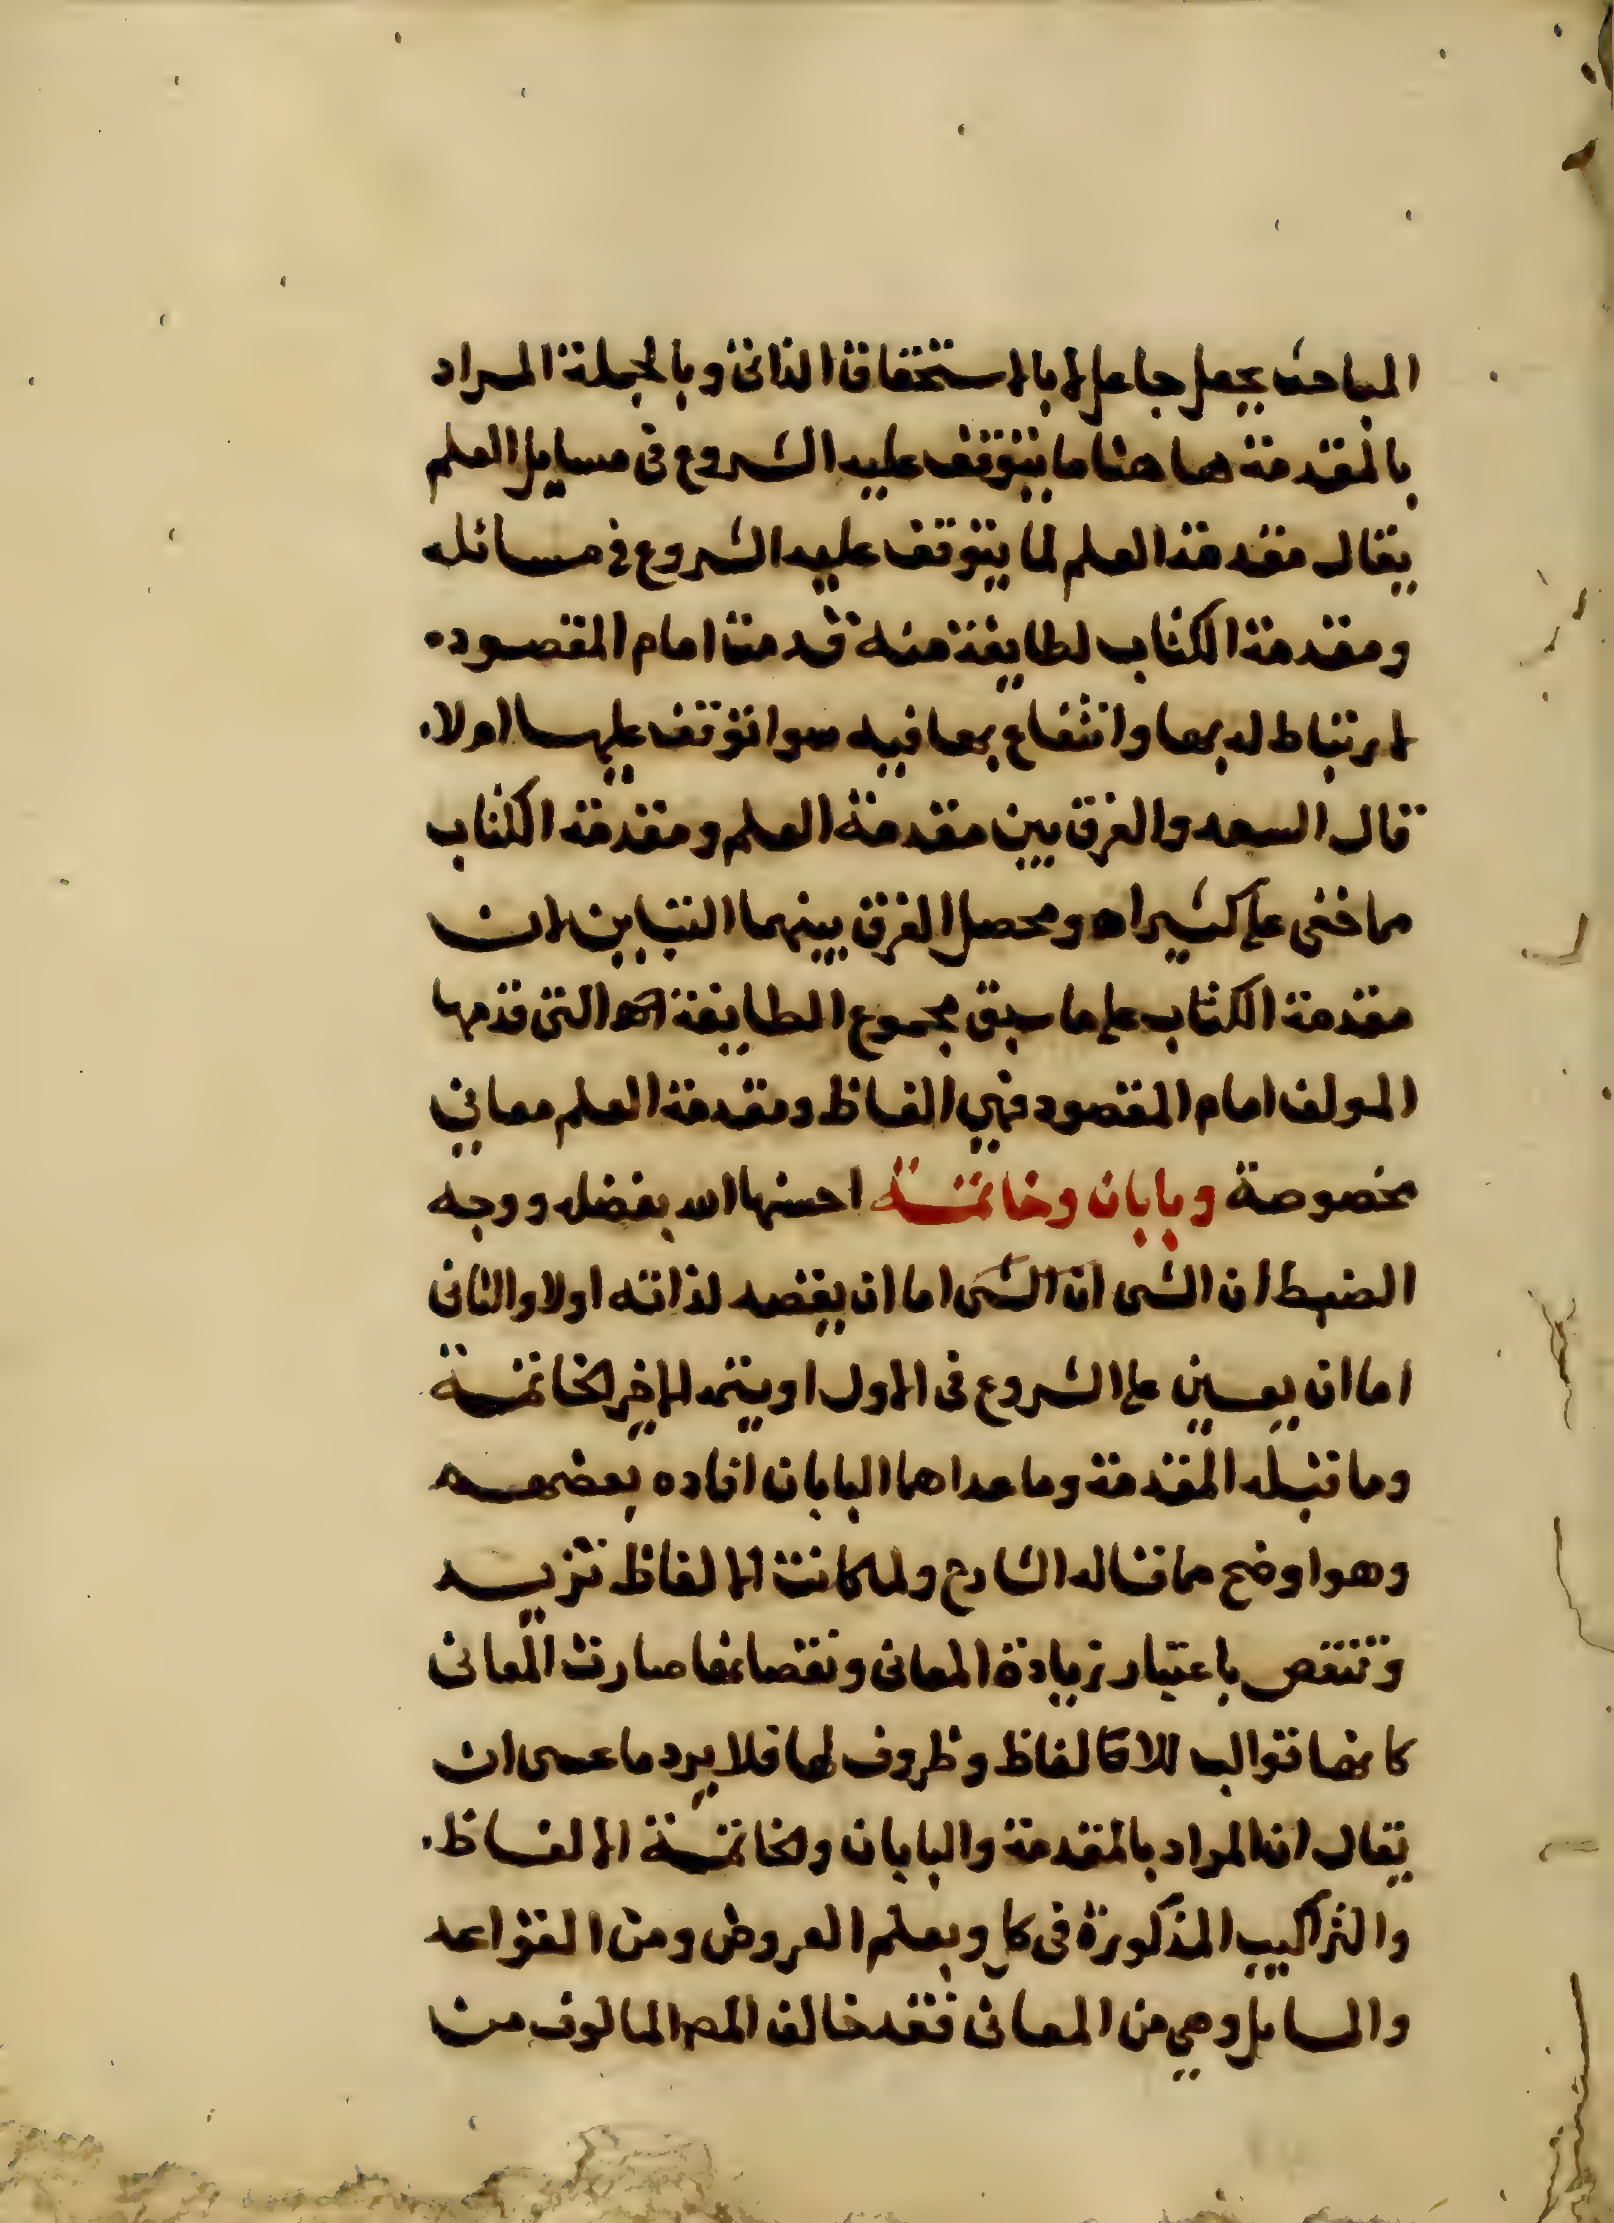 المباحث بجعل جاعل لا بالاستحقاق الذاتى وبالجملة المراد
بالمقدمة هاهنا ما يتوقف عليه الشروع فى مسايل العلم
يقال مقدمة العلم لما يتوقف عليه الشروع فى مسائله
ومقدمة الكتاب لطايفة منه قدمت امام المقصود
لارتباط له بها وانتفاع بها فيه سوا توقف عليها اولا
قال السعد والفرق بين مقدمة العلم ومقدمة الكتاب
مما خفى على كثير اه ومحصل الفرق بينهما التباين لان
مقدمة الكتاب على ما سبق مجموع الطايفة التى قدمها
المولف امام المقصود فهي الفاظ ومقدمة العلم معاني
مخصوصة وبابان وخاتمة احسنها الله بفضله ووجه
الضبط ان الشى ان الشى اما ان يقصد لذاته اولا والثانى
اما ان يعين على الشروع فى الاول او يتمه الاخير الخاتمة
وما قبله المقدمة وما عداهما البابان افاده بعضهم
وهو اوضح مما قاله الشارح ولما كانت الالفاظ تزيد
وتنقص باعتبار زيادة المعانى ونقصانها صارت المعانى
كانها قوالب للالفاظ وظروف لها فلا يرد ما عسى ان
يقال ان المراد بالمقدمة والبابان والخاتمة الالفاظ
والتراكيب المذكورة فى كل وبعلم العروض ومن القواعد
والمسايل وهي من المعانى فقد خالف المص المالوف من